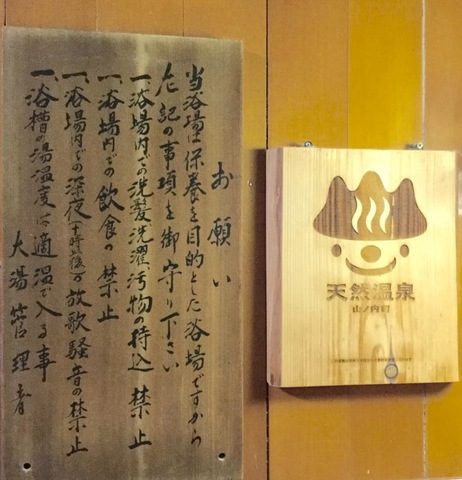 お願い
当浴場は保養を目的とした浴場ですから
左記の事項を御守り下さい
一、浴場内での洗髪洗濯汚物の持込禁止
一、浴場内での飲食の禁止
一、浴場内での深夜(十時以後)の放歌騒音の禁止
一、浴槽の湯温度は適温で入る事
大湯管理
天然温泉
山ノ内町